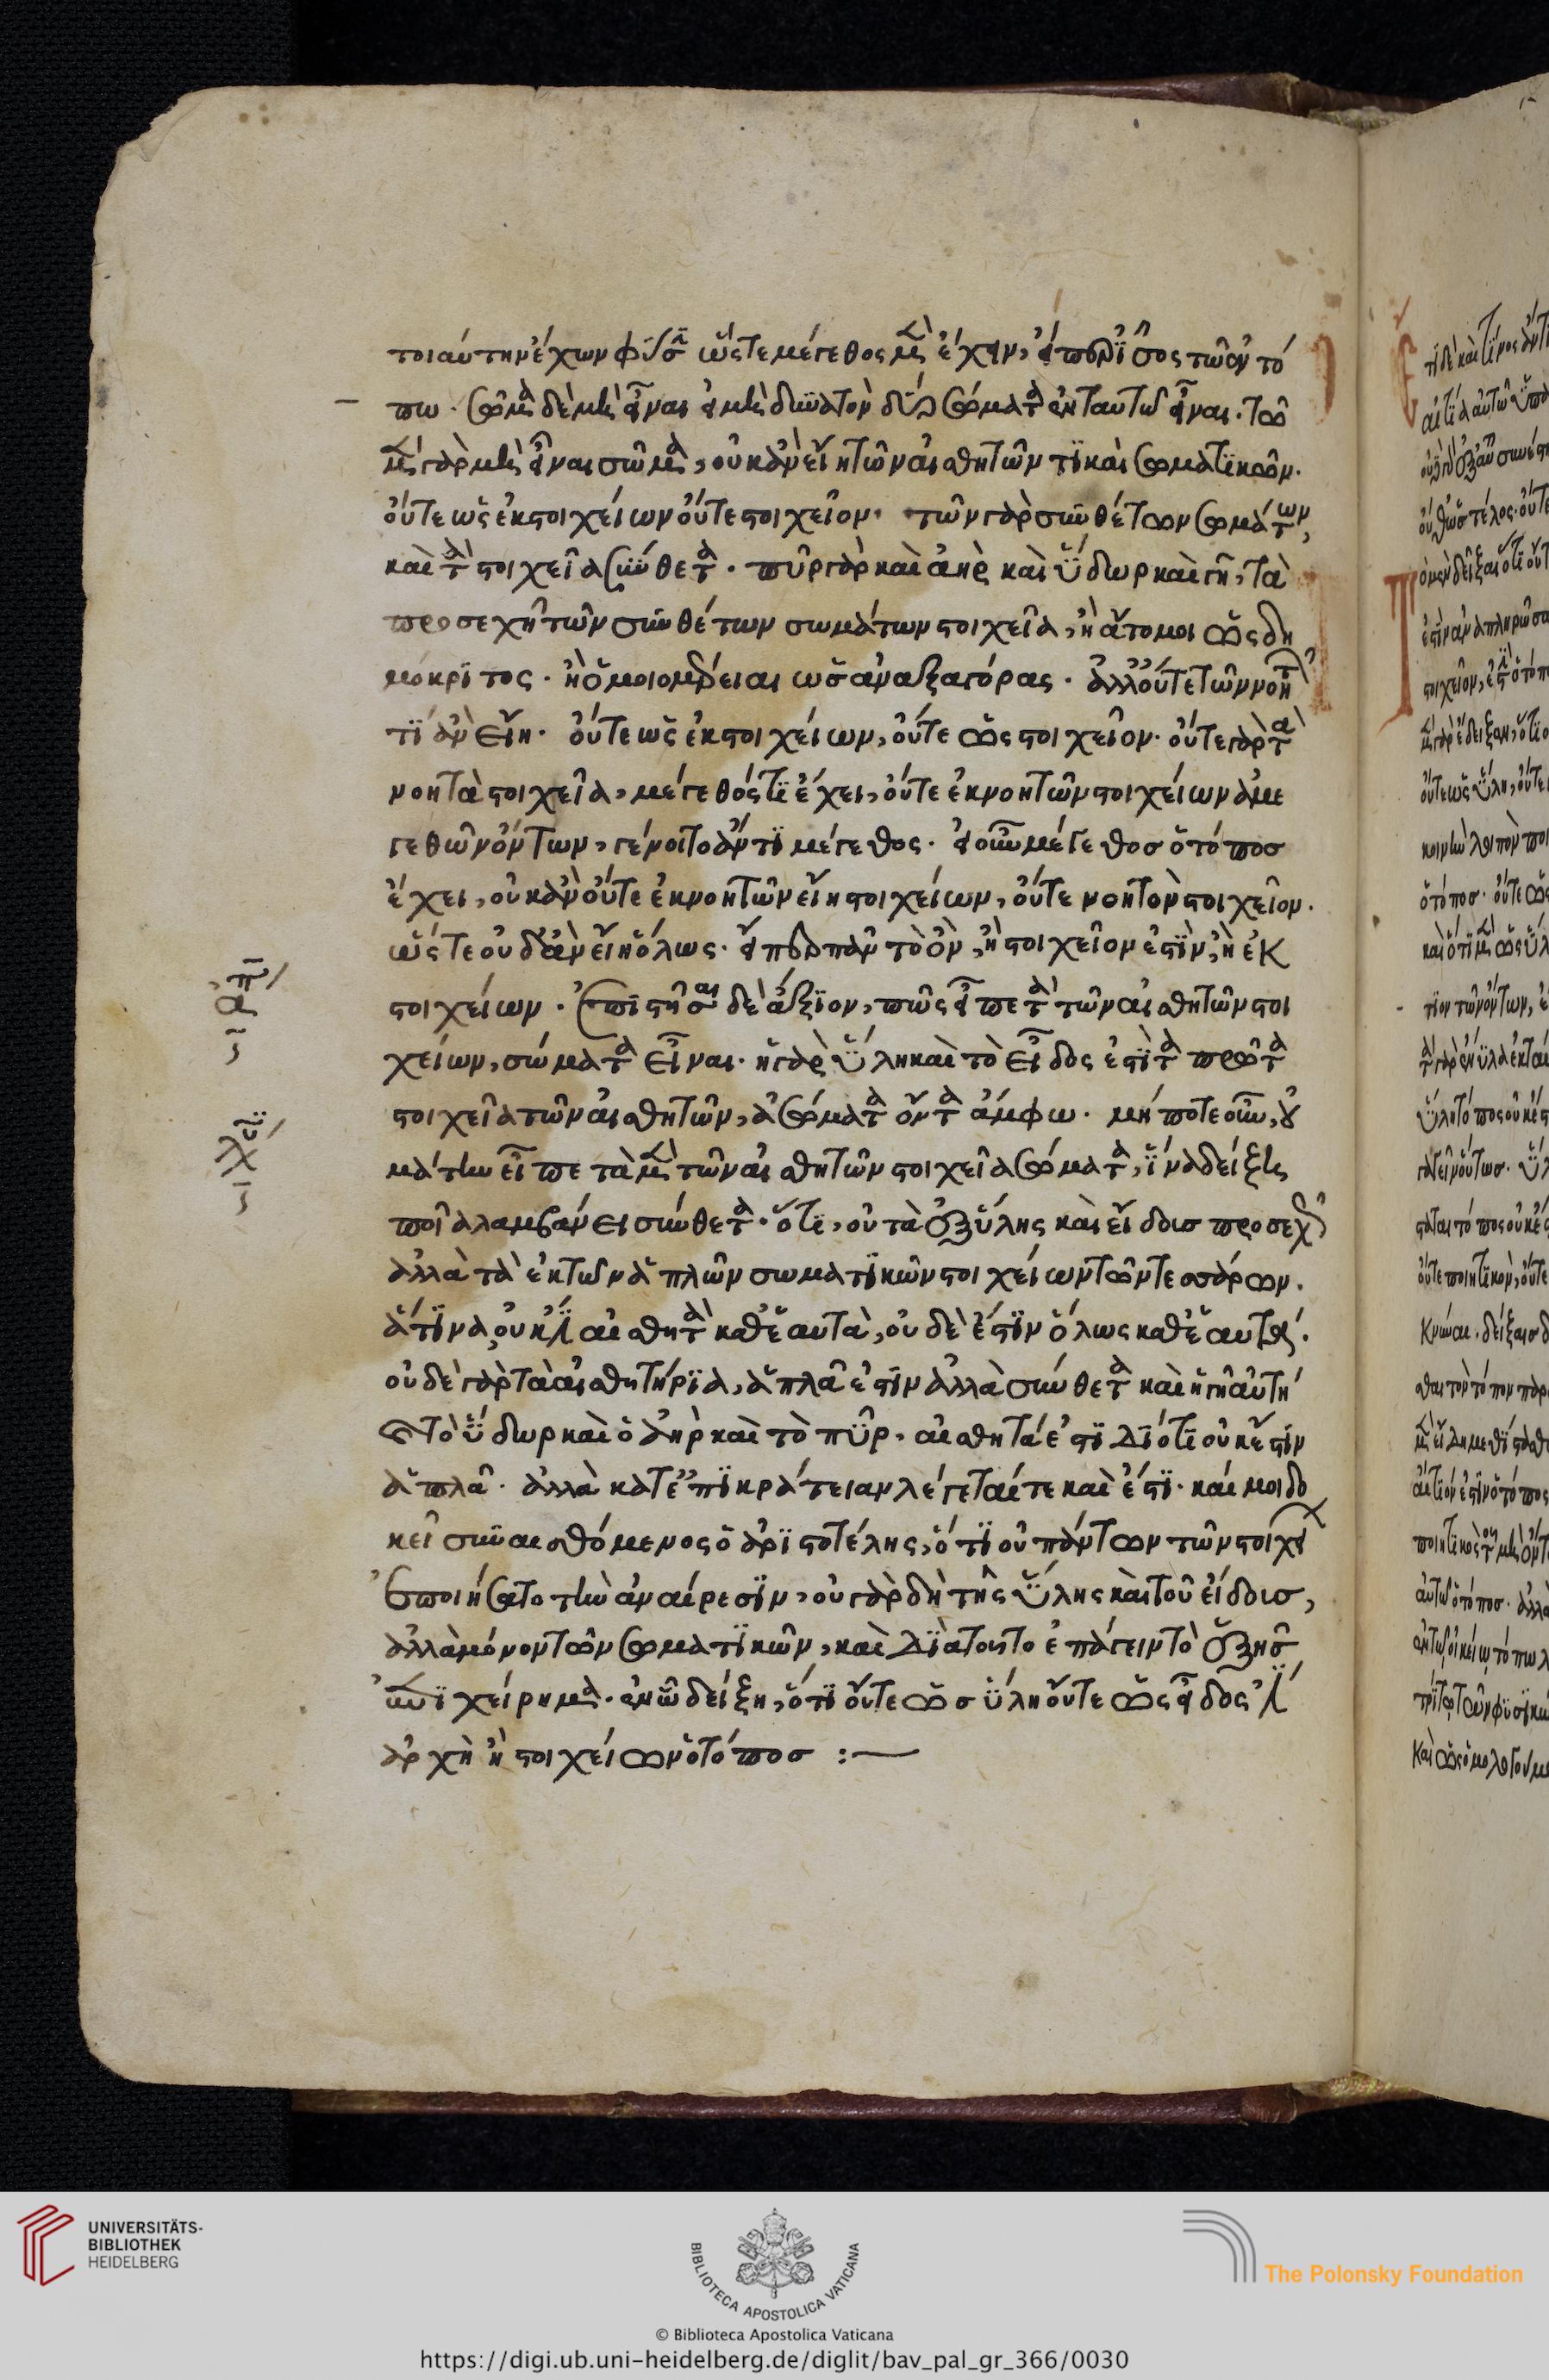 τοιαύτην ἔχων φύσιν ὥστε μέγεθος μὲν ἔχειν, εἴπερ ἴσος τῷ ἐν τό
πω. σῶμα δὲ μὴ εἶναι εἰ μὴ δυνατὸν δύο σώματα ἐν ταυτῷ εἶναι. τῷ
μέντοι γὰρ μὴ εἶναι σῶμα, οὐκ ἂν εἴη τῶν αἰσθητῶν τι καὶ σωματικῶν.
οὔτε ὡς ἐκ στοιχείων οὔτε στοιχεῖον. τῶν γὰρ συνθέτων σωμάτων,
καὶ τὰ στοιχεῖα σύνθετα. πῦρ γὰρ καὶ ἀὴρ καὶ ὕδωρ καὶ γῆ, τὰ
προσεχῆ τῶν συνθέτων σωμάτων στοιχεῖα, ἢ ἄτομοι ὡς δη
μόκριτος. ἢ ὁμοιομέρειαι ὡς ἀναξαγόρας. ἀλλ' οὔτε τῶν νοητῶν
τι ἂν εἴη. οὔτε ὡς ἐκ στοιχείων, οὔτε ὡς στοιχεῖον. οὔτε γὰρ τὰ
νοητὰ στοιχεῖα, μέγεθός τι ἔχει, οὔτε ἐκ νοητῶν στοιχείων ἀμε
γεθῶν ὄντων, γένοιτο ἄν τι μέγεθος. εἰ οὖν μέγεθος ὁ τόπος
ἔχει, οὐκ ἂν οὔτε ἐκ νοητῶν εἴη στοιχείων, οὔτε νοητὸν στοιχεῖον.
ὥστε οὐδ' ἂν εἴη ὅλως. εἴπερ πᾶν τὸ ὂν, ἢ στοιχεῖον ἐστὶν, ἢ ἐκ
στοιχείων. ἐπιστῆσαι δὲ ἄξιον, πῶς εἶπε τὰ τῶν αἰσθητῶν στοι
χείων, σώματα εἶναι. ἡ γὰρ ὕλη καὶ τὸ εἶδος ἐστὶ τὰ πρῶτα
στοιχεῖα τῶν αἰσθητῶν, ἀσώματα ὄντα ἄμφω. μήποτε οὖν, οὐ
μάτην εἶπε τὰ μὲν τῶν αἰσθητῶν στοιχεῖα σώματα, ἵνα δείξῃ
ποῖα λαμβάνει σύνθετα. ὅτι, οὐ τὰ ἐξ ὕλης καὶ εἴδους προσεχῶς
ἀλλὰ τὰ ἐκ τῶν ἁπλῶν σωματικῶν στοιχείων τῶν τεσσάρων.
ἅτινα, οὐκ ἔστι αἰσθητὰ καθ' ἑαυτὰ, οὐδὲ ἔστιν ὅλως καθ' ἑαυτά.
οὐδὲ γὰρ τὰ αἰσθητήρια, ἁπλᾶ ἐστὶν ἀλλὰ σύνθετα καὶ ἡ γῆ αὕτη
καὶ τὸ ὕδωρ καὶ ὁ ἀὴρ καὶ τὸ πῦρ. αἰσθητά ἐστι διότι οὐκ ἔστιν
ἁπλᾶ. ἀλλὰ κατ' ἐπικράτειαν λέγεταί τε καὶ ἔστι. καί μοι δο
κεῖ συναισθόμενος ὁ ἀριστοτέλης, ὅτι οὐ πάντων τῶν στοιχείων
ἐποιήσατο τὴν ἀναίρεσιν, οὐ γὰρ δὴ τῆς ὕλης καὶ τοῦ εἴδους,
ἀλλὰ μόνον τῶν σωματικῶν, καὶ διὰ τοῦτο ἐπάγειν τὸ ἐξῆς
ἐπιχείρημα. ἐν ᾧ δείξῃ, ὅτι οὔτε ὡς ὕλη οὔτε ὡς εἶδος ἐστὶ
ἀρχὴ ἢ στοιχείων ὁ τόπος :—
UNIVERSITÄTS-
BIBLIOTHEK
HEIDELBERG
BIBLIOTECA APOSTOLICA VATICANA
The Polonsky Foundation
© Biblioteca Apostolica Vaticana
https://digi.ub.uni-heidelberg.de/diglit/bav_pal_gr_366/0030